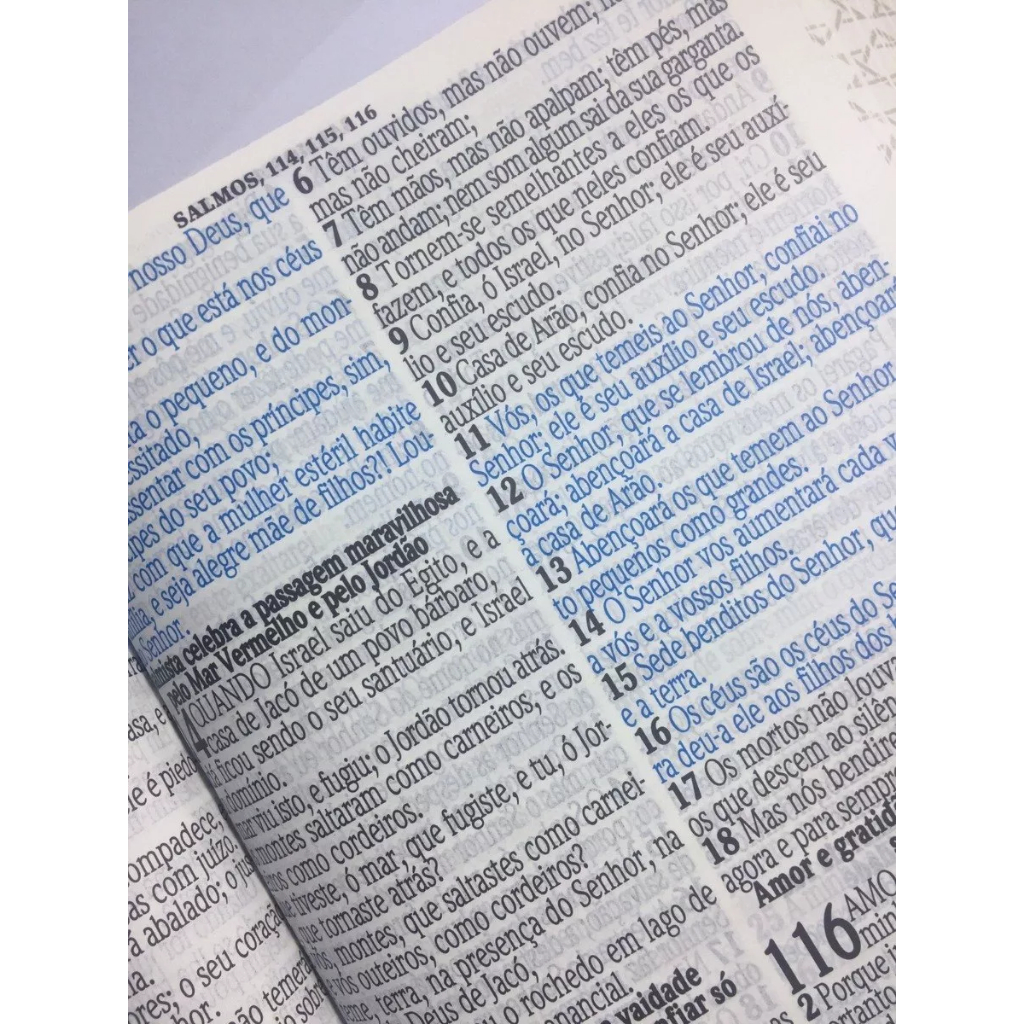 SALMOS, 114, 115, 116
nosso Deus, que
o que está nos céus
o pequeno, e do mon-
com os príncipes, sim,
do seu povo;
com que a mulher estéril habite
e seja alegre mãe de filhos? Lou-
Senhor.
celebra a passagem maravilhosa
pelo Mar Vermelho e pelo Jordão
QUANDO Israel saiu do Egito, e a
casa de Jacó de um povo bárbaro,
ficou sendo o seu santuário, e Israel
domínio.
viu isto, e fugiu; o Jordão tornou atrás.
montes saltaram como carneiros, e os
como cordeiros.
tiveste, ó mar, que fugiste, e tu, ó Jor-
que tornaste atrás?
montes, que saltastes como carnei-
e vós outeiros, como cordeiros?
terra, na presença do Senhor, na
Deus de Jacó,
o rochedo em lago de
manancial.
vaidade
só
6 Têm ouvidos, mas não ouvem;
mas não cheiram;
7 Têm mãos, mas não apalpam; têm pés, mas
não andam; nem som algum sai da sua garganta.
8 Tornem-se semelhantes a eles os que os
fazem, e todos os que neles confiam.
9 Confia, ó Israel, no Senhor; ele é seu auxí-
lio e seu escudo.
10 Casa de Arão, confia no Senhor; ele é seu
auxílio e seu escudo.
11 Vós, os que temeis ao Senhor, confiai no
Senhor; ele é seu auxílio e seu escudo.
12 O Senhor, que se lembrou de nós, aben-
çoará; abençoará a casa de Israel; abençoará
a casa de Arão.
13 Abençoará os que temem ao Senhor
to pequenos como grandes.
14 O Senhor vos aumentará cada
a vós e a vossos filhos.
15 Sede benditos do Senhor, qu
e a terra.
16 Os céus são os céus do Se
ra deu-a ele aos filhos dos
17 Os mortos não louva
os que descem ao silên
18 Mas nós bendire
agora e para sempre
Amor e gratid
116 AMO
2 Porque
casa, e
ele é
compadece,
com juízo.
abalado; o
o seu coração
não